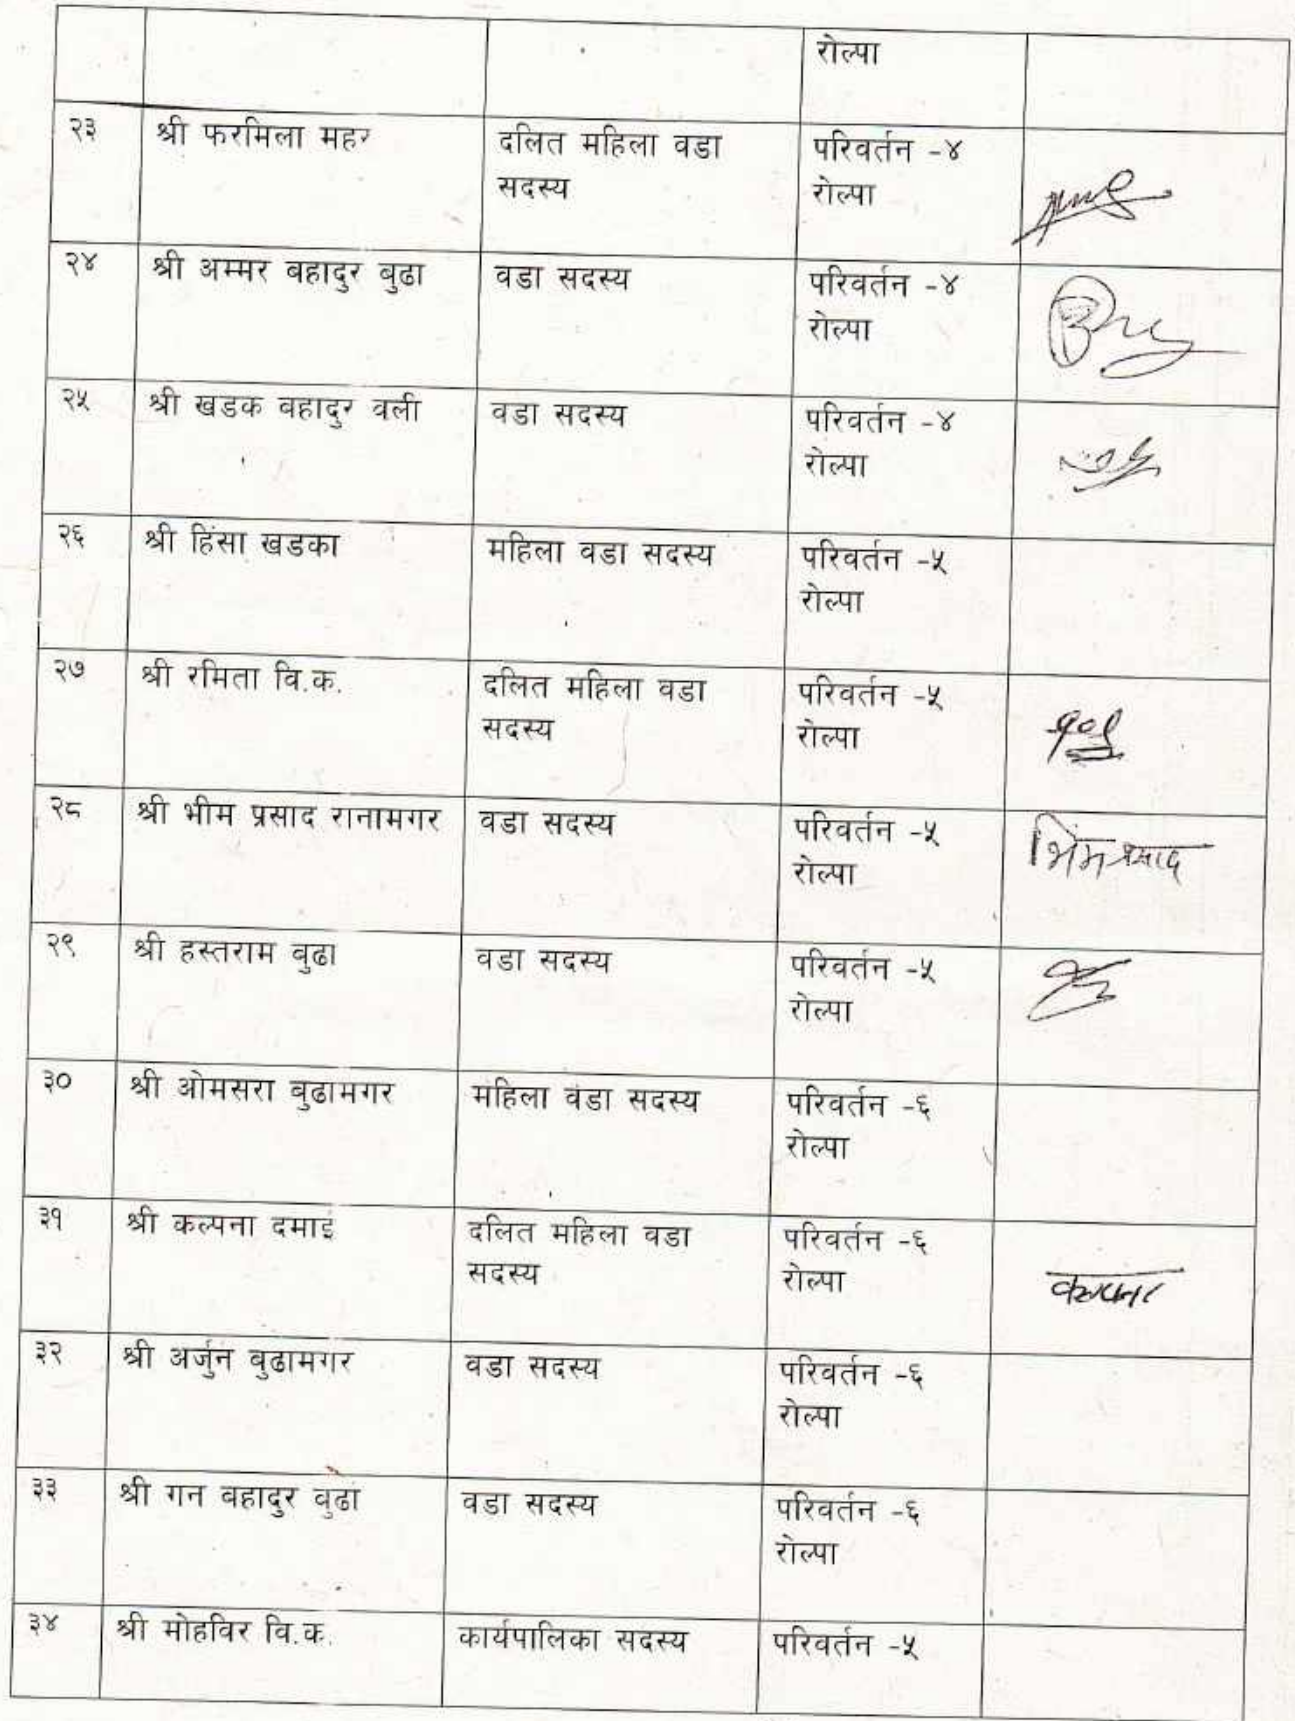 रोल्पा
२३ श्री फरमिला महर दलित महिला वडा परिवर्तन -४
सदस्य रोल्पा
२४ श्री अम्मर बहादुर बुढा वडा सदस्य परिवर्तन -४
रोल्पा
२५ श्री खडक वहादुर वली वडा सदस्य परिवर्तन -४
रोल्पा
२६ श्री हिंसा खडका महिला वडा सदस्य परिवर्तन -५
रोल्पा
२७ श्री रमिता वि.क. दलित महिला वडा परिवर्तन -५
सदस्य रोल्पा
२८ श्री भीम प्रसाद रानामगर वडा सदस्य परिवर्तन -५
रोल्पा भिमप्रसाद
२९ श्री हस्तराम वुढा वडा सदस्य परिवर्तन -५
रोल्पा
३० श्री ओमसरा बुढामगर महिला वडा सदस्य परिवर्तन -६
रोल्पा
३१ श्री कल्पना दमाइ दलित महिला वडा परिवर्तन -६
सदस्य रोल्पा कल्पना
३२ श्री अर्जुन वुढामगर वडा सदस्य परिवर्तन -६
रोल्पा
३३ श्री गन वहादुर वुढा वडा सदस्य परिवर्तन -६
रोल्पा
३४ श्री मोहविर वि.क. कार्यपालिका सदस्य परिवर्तन -५